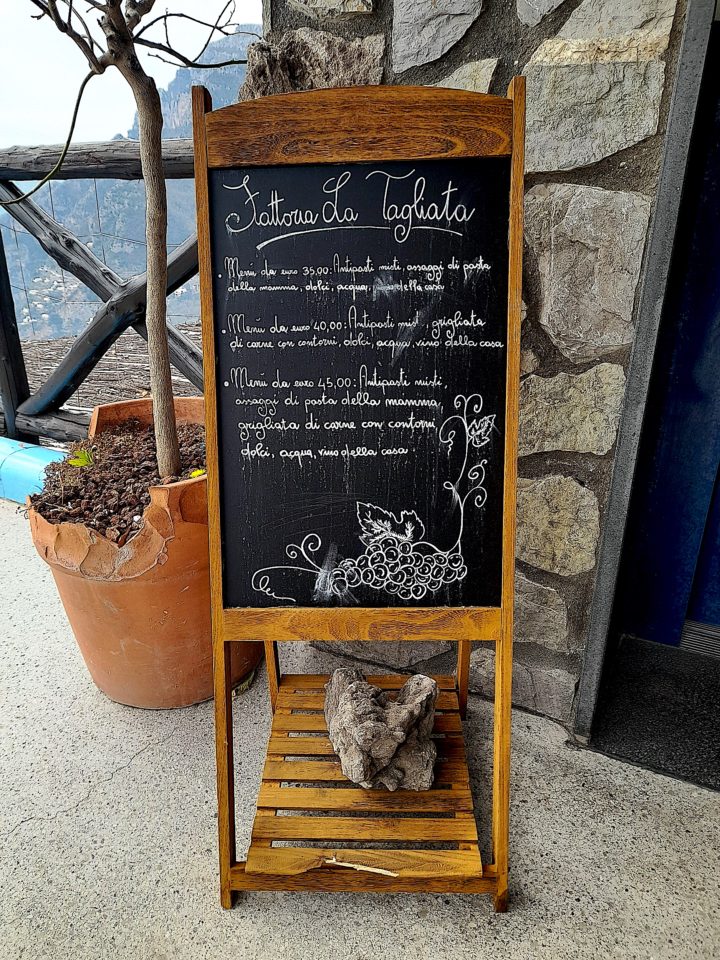 Fattoria La Tagliata
• Menù da euro 35,00: Antipasti misti, assaggi di pasta
della mamma, dolci, acqua, vino della casa
• Menù da euro 40,00: Antipasti misti, grigliata
di carne con contorni, dolci, acqua, vino della casa
• Menù da euro 45,00: Antipasti misti,
assaggi di pasta della mamma,
grigliata di carne con contorni,
dolci, acqua, vino della casa